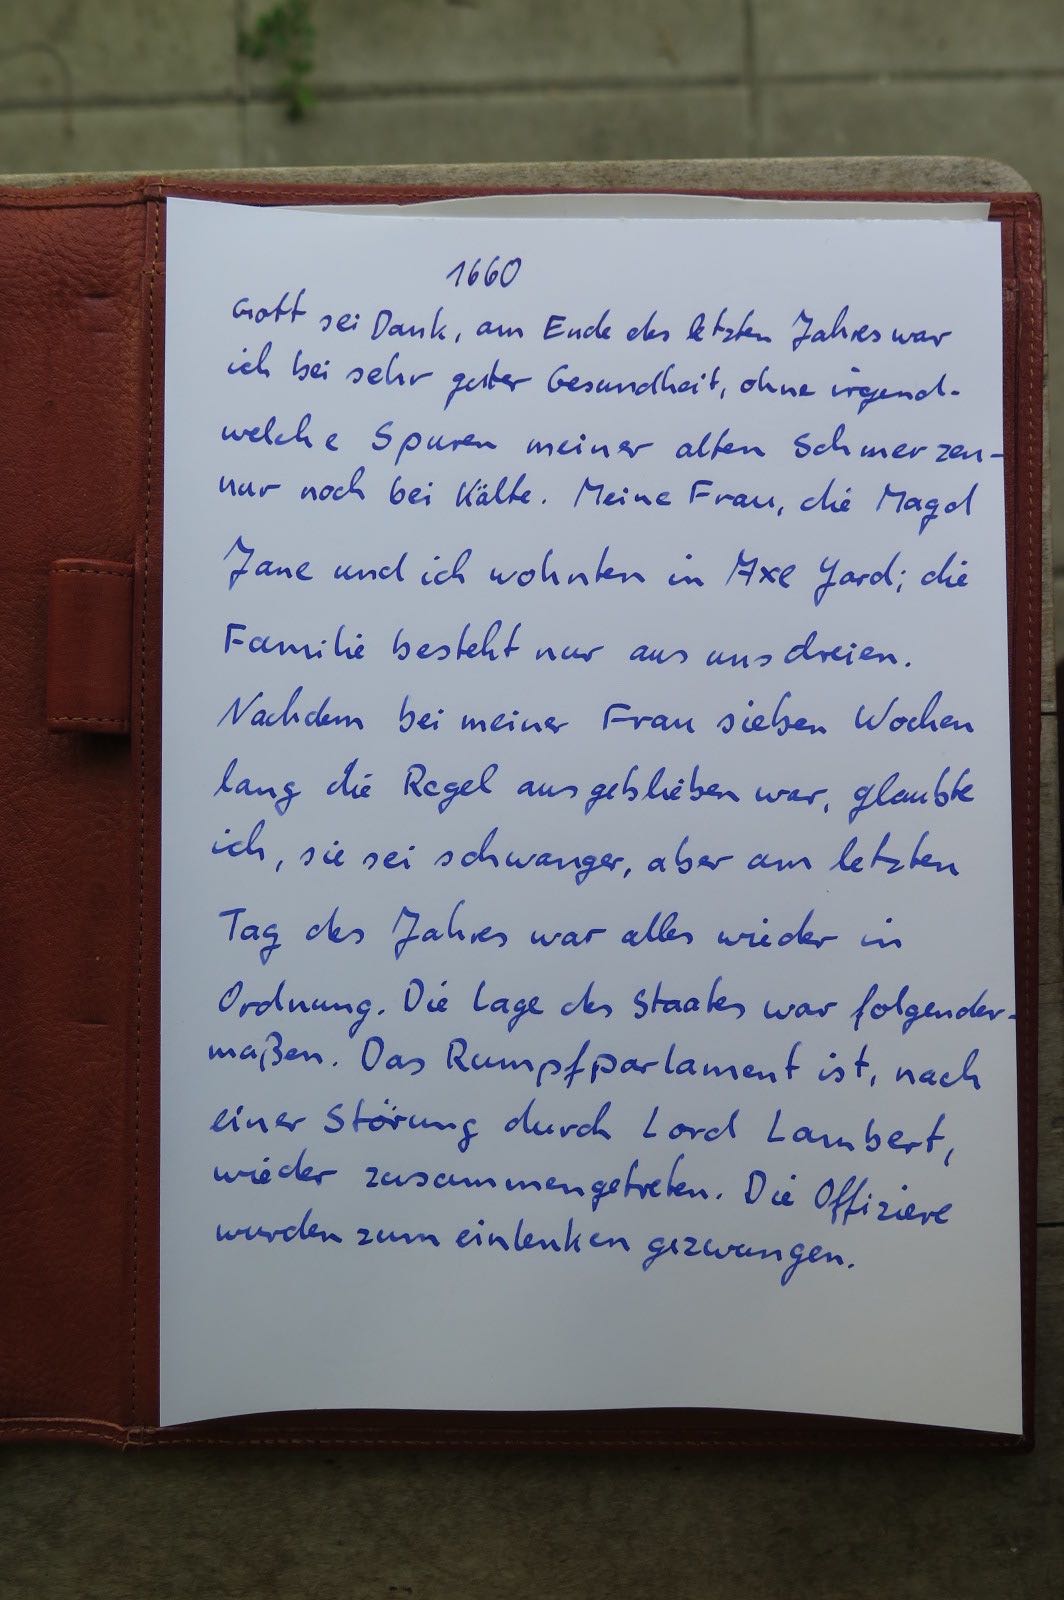 1660
Gott sei Dank, am Ende des letzten Jahres war
ich bei sehr guter Gesundheit, ohne irgend-
welche Spuren meiner alten Schmerzen-
nur noch bei Kälte. Meine Frau, die Magd
Jane und ich wohnten in Axe Yard; die
Familie besteht nur aus uns dreien.
Nachdem bei meiner Frau sieben Wochen
lang die Regel ausgeblieben war, glaubte
ich, sie sei schwanger, aber am letzten
Tag des Jahres war alles wieder in
Ordnung. Die Lage des Staates war folgender-
maßen. Das Rumpfparlament ist, nach
einer Störung durch Lord Lambert,
wieder zusammengetreten. Die Offiziere
wurden zum einlenken gezwungen.